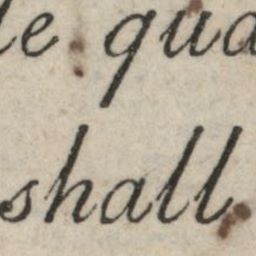 le qua
shall